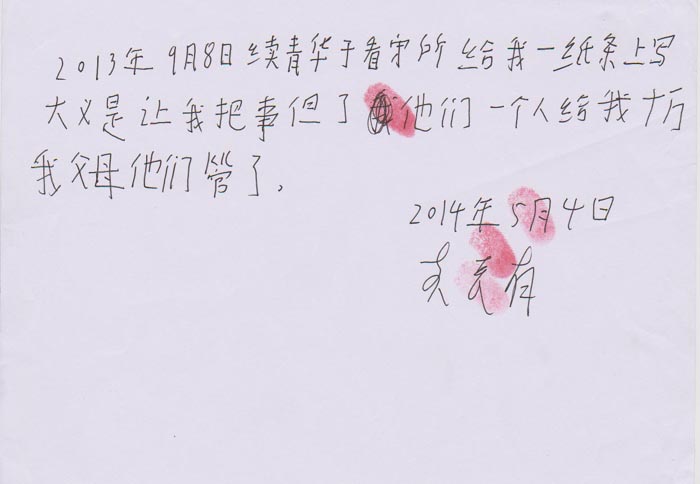 2013年9月8日续青华于看守所给我一纸条上写
大义是让我把事但了他们一个人给我十万
我父母他们管了.
2014年5月4日